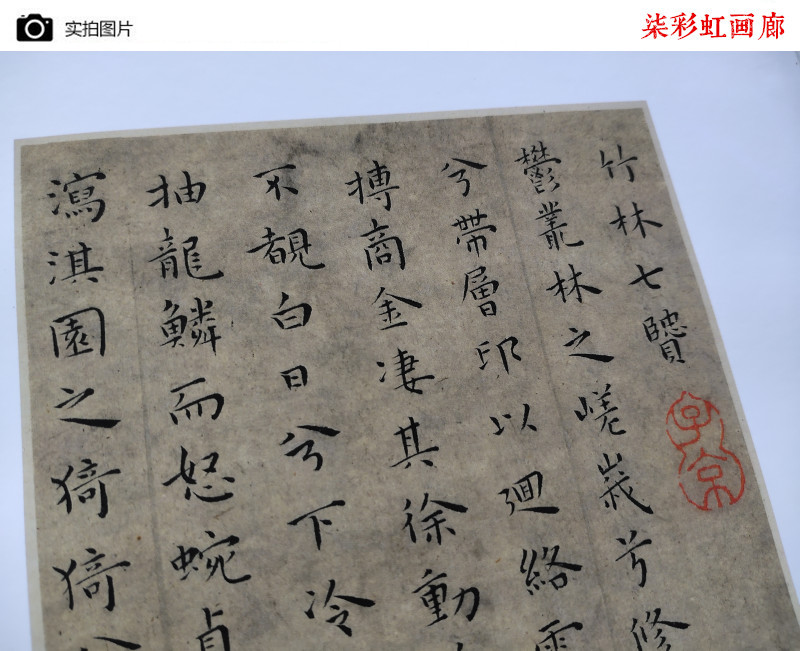 实拍图片
柒彩虹画廊
竹林七
鬱叢林之嵯峩兮修
兮帶層邱以迴絡
摶商金凄其徐動
不覩白日兮下冷
抽龍鱗而怒蜿
瀉淇園之猗猗
子京